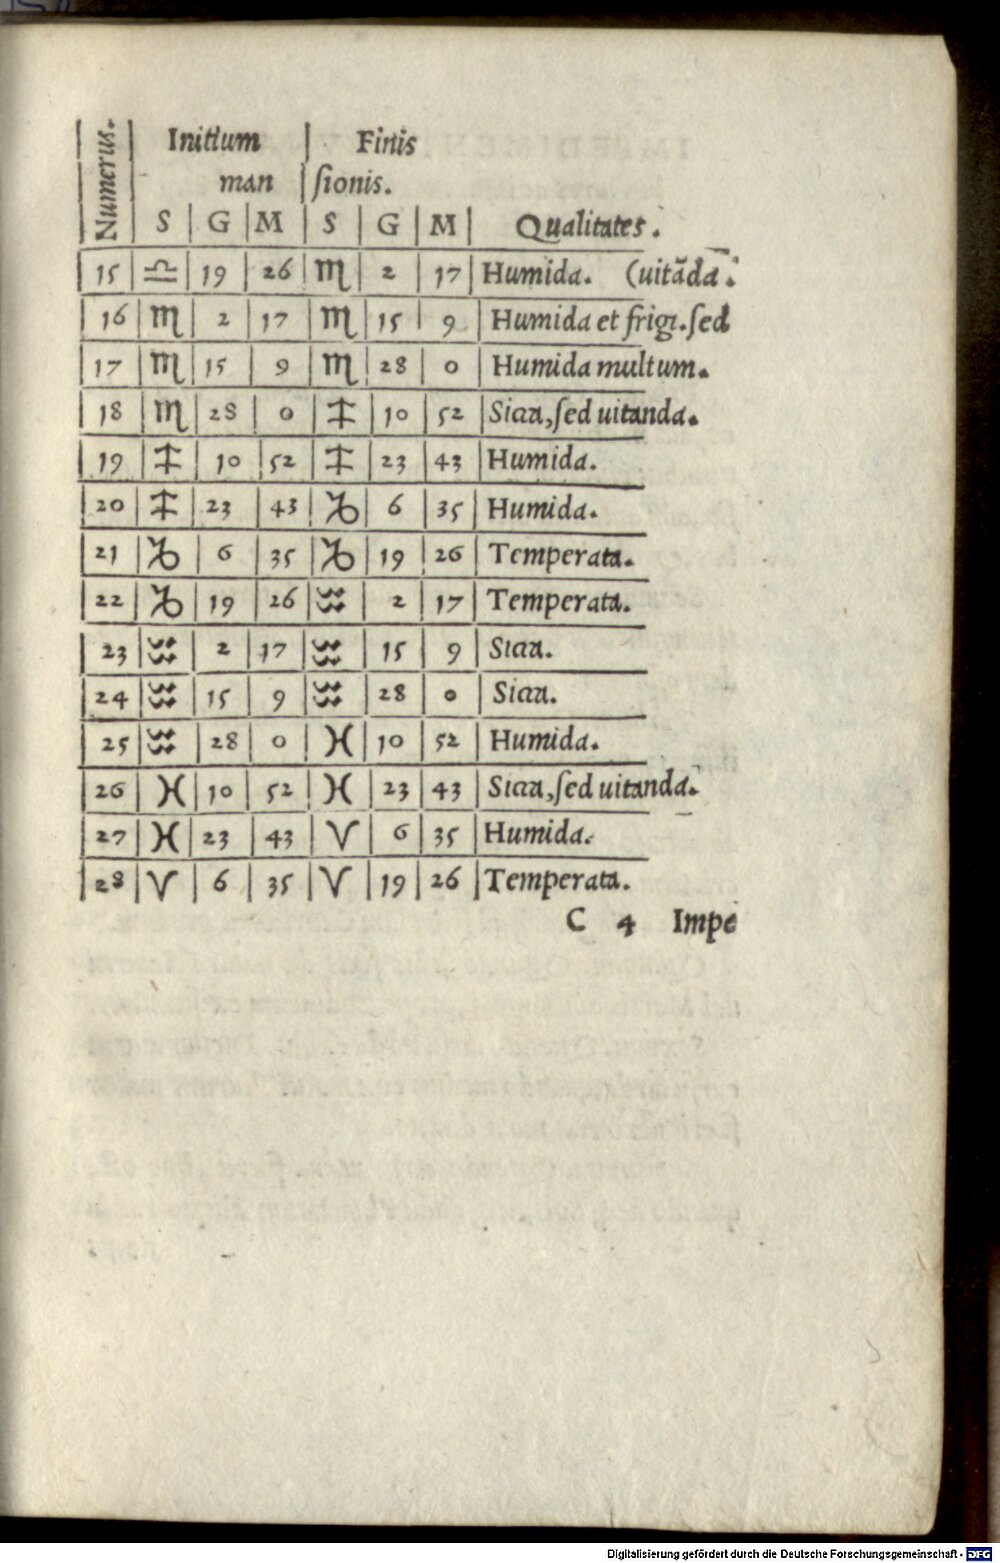 Numerus.
Initium | Finis
man | ſionis.
S | G | M | S | G | M | Qualitates.
15 | ♎ | 19 | 26 | ♏ | 2 | 17 | Humida. (uitãda.
16 | ♏ | 2 | 17 | ♏ | 15 | 9 | Humida et frigi. ſed
17 | ♏ | 15 | 9 | ♏ | 28 | 0 | Humida multum.
18 | ♏ | 28 | 0 | ♐ | 10 | 52 | Sicca, ſed uitanda.
19 | ♐ | 10 | 52 | ♐ | 23 | 43 | Humida.
20 | ♐ | 23 | 43 | ♑ | 6 | 35 | Humida.
21 | ♑ | 6 | 35 | ♑ | 19 | 26 | Temperata.
22 | ♑ | 19 | 26 | ♒ | 2 | 17 | Temperata.
23 | ♒ | 2 | 17 | ♒ | 15 | 9 | Sicca.
24 | ♒ | 15 | 9 | ♒ | 28 | 0 | Sicca.
25 | ♒ | 28 | 0 | ♓ | 10 | 52 | Humida.
26 | ♓ | 10 | 52 | ♓ | 23 | 43 | Sicca, ſed uitanda.
27 | ♓ | 23 | 43 | ♈ | 6 | 35 | Humida.
28 | ♈ | 6 | 35 | ♈ | 19 | 26 | Temperata.
C 4 Impe
Digitalisierung gefördert durch die Deutsche Forschungsgemeinschaft - DFG